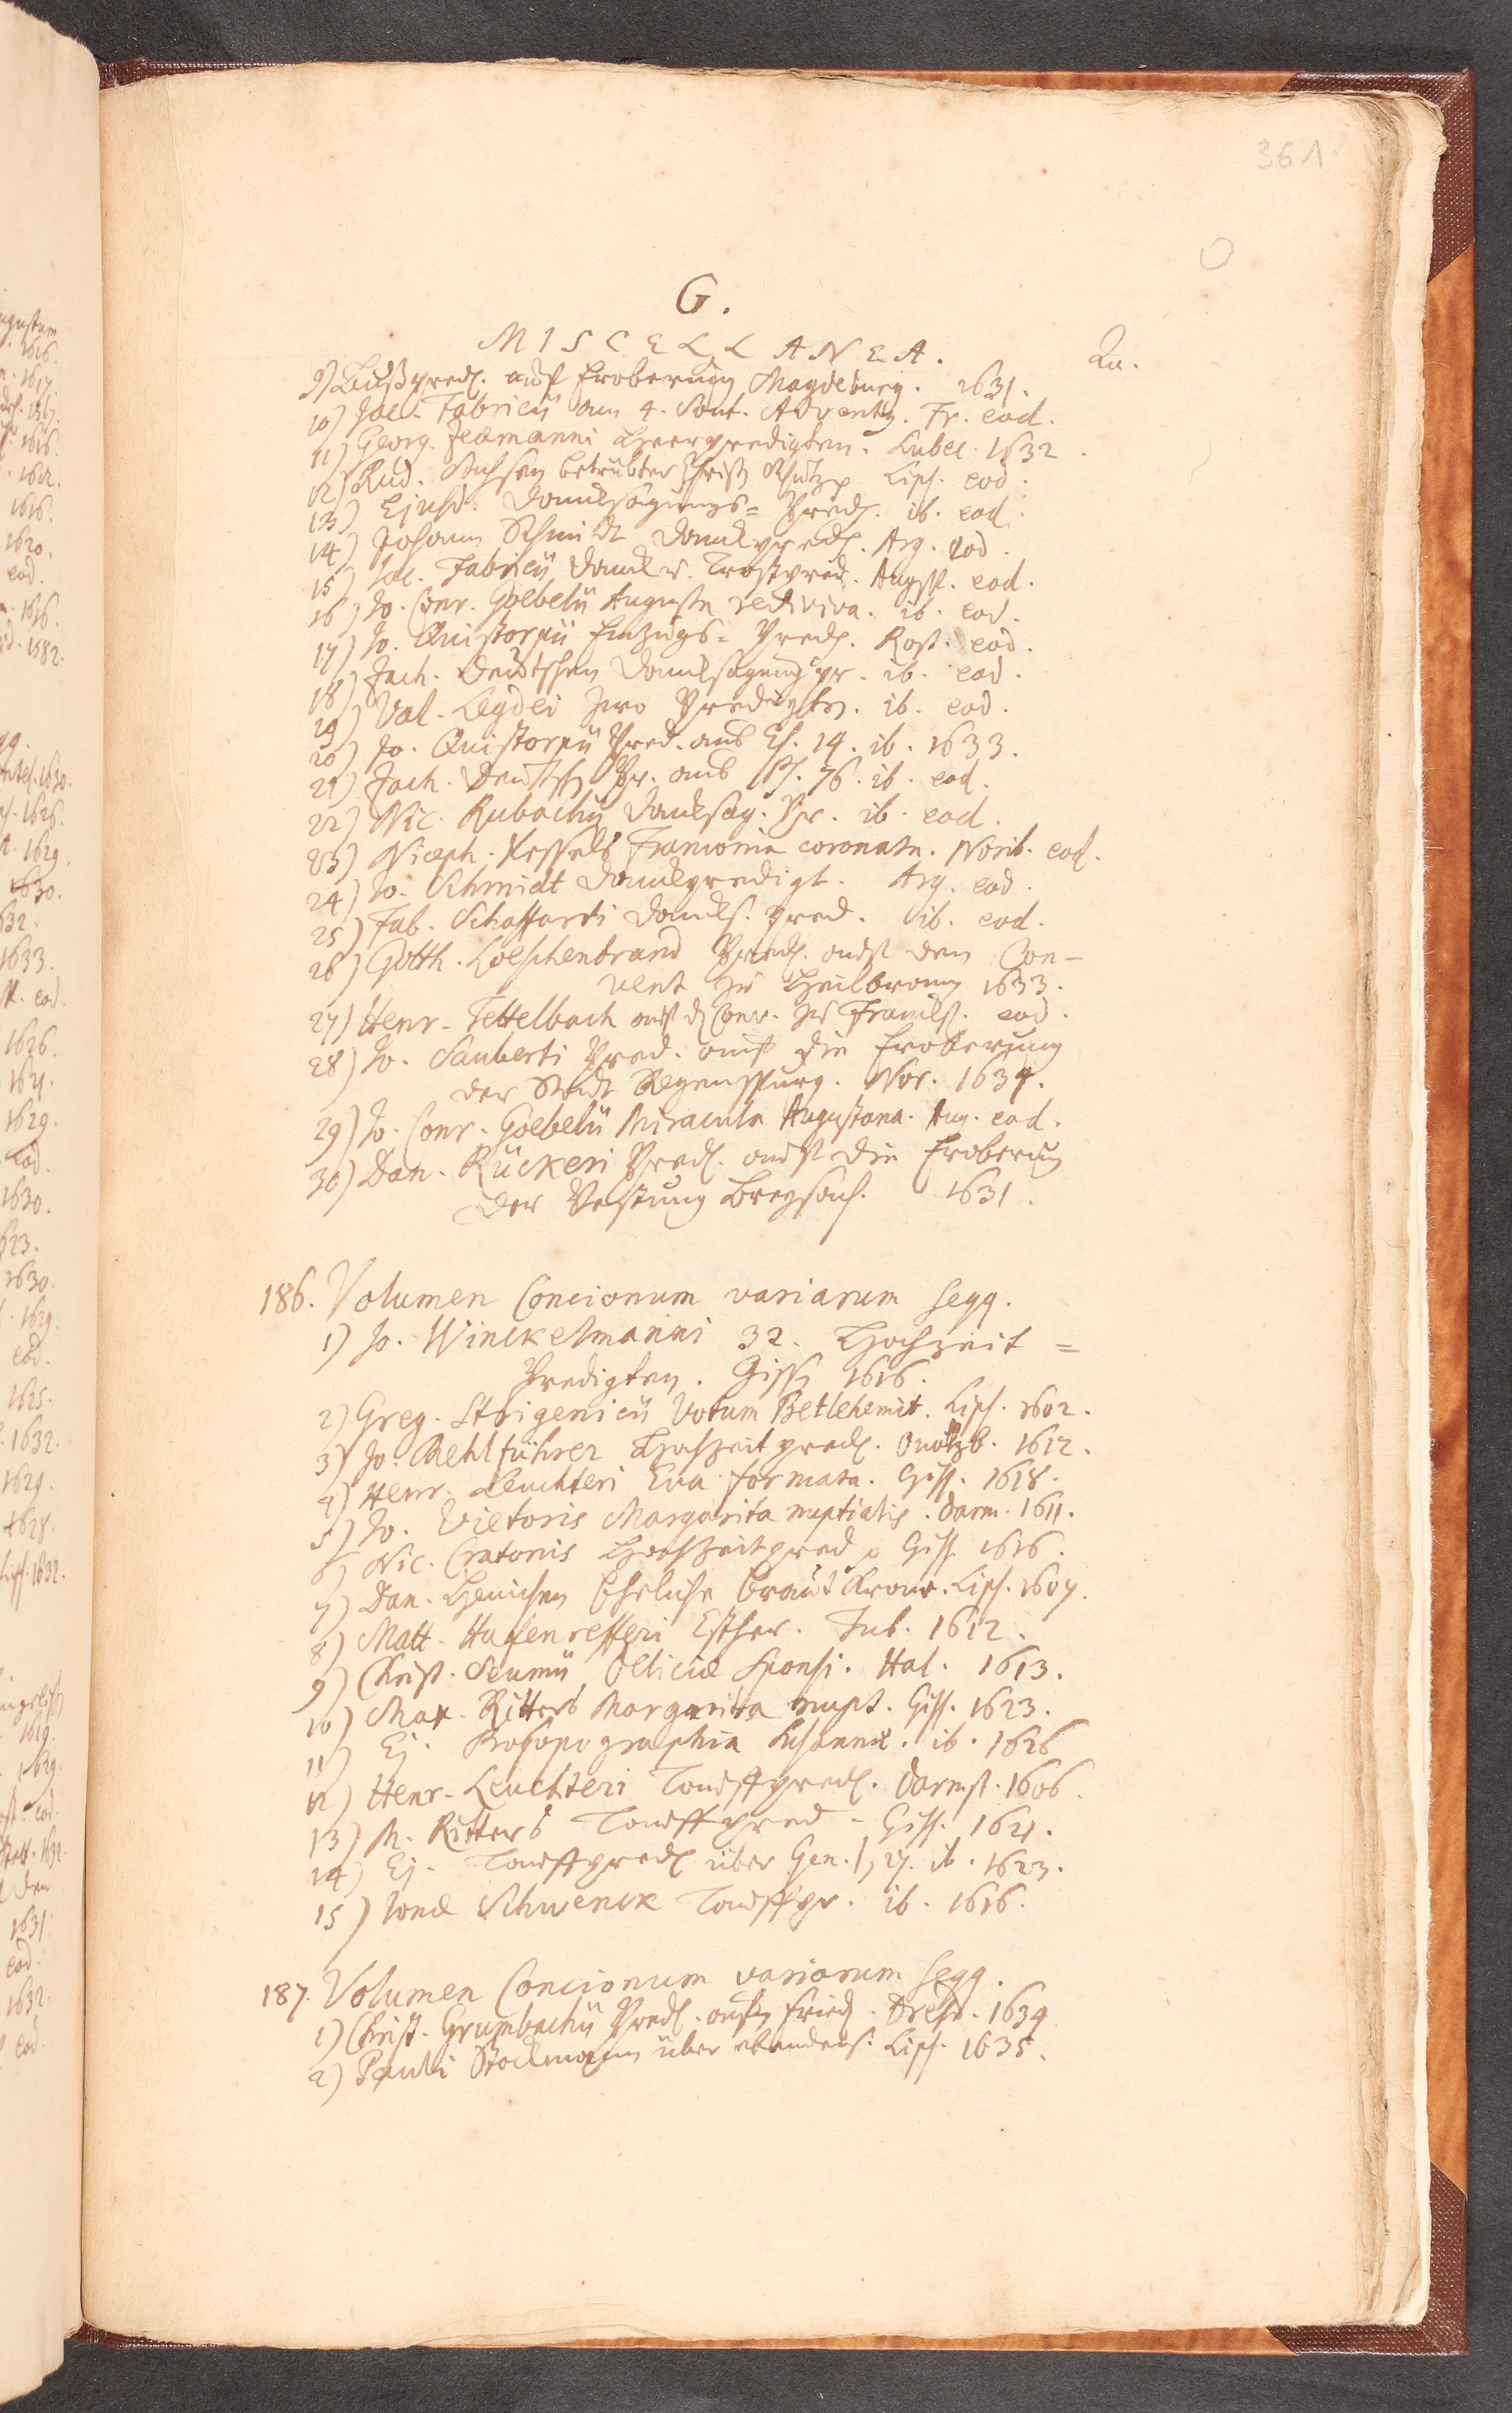 361
G.
MISCELLANEA. Qu.
9) Bußpred. auf Eroberung Magdeburg. 1631.
10) Jac. Fabricii am 4. Sont. Advents. Fr. eod.
11) Georg. Zeaemanni Heerpredigten. Lubec. 1632.
12) Rud. betrübter Christen Lips. eod.
13) Ejusd. Danksagungs= Pred. ib. eod.
14) Johann Schmidt Dankpred. Arg. eod.
15) Jac. Fabricii Dank u. Trostpred. Augsp. eod.
16) Jo. Conr. Goebelii Augusta rediviva. ib. eod.
17) Jo. Quistorpii Einzugs= Pred. Rost. eod.
18) Zach. Deutschen Danksagungspr. ib. eod.
19) Val. Legdei zwo Predigten. ib. eod.
20) Jo. Quistorpii Pred. aus Es. 14. ib. 1633.
21) Zach. Deutsch Pr. aus Ps. 76. ib. eod.
22) Nic. Rubachii Danksag. Pr. ib. eod.
23) Niceph. Kessels Franconia coronata. Norib. eod.
24) Jo. Schmidt Dankpredigt. Arg. eod.
25) Fab. Schaffarti Danks. pred. ib. eod.
26) Gotth. Loeschenbrand Pred. auf den Con-
vent zu Heilbronn 1633.
27) Henr. Tettelbach auf d. Conv. zu Franckf. eod.
28) Jo. Sauberti Pred. auf die Eroberung
der Stadt Regenspurg. Nor. 1634.
29) Jo. Conr. Goebelii Miracula Augustana. Aug. eod.
30) Dan. Rückeri Pred. auf die Eroberung
der Vestung Breysach. 1631.
186. Volumen Concionum variarum seqq.
1) Jo. Winckelmanni 32. Hochzeit =
Predigten. Giss. 1616.
2) Greg. Strigenicii Votum Betlehemit. Lips. 1602.
3) Jo. Mehlführer Hochzeit pred. Onoltzb. 1612.
4) Henr. Leuchteri Eva formata. Giss. 1618.
5) Jo. Vietoris Margarita nuptialis. Darm. 1611.
6) Nic. Cratonis Hochzeitpred. Giss. 1616.
7) Dan. Heinichen Ehrliche Braut Krone. Lips. 1607.
8) Matt. Hafenrefferi Esther. Tub. 1612.
9) Christ. Seumii Deliciæ Sponsi. Hal. 1613.
10) Max. Ritters Margarita nupt. Giss. 1623.
11) Ej. Prosopographia Susannæ. ib. 1626
12) Henr. Leuchteri Tauffpred. Darmst. 1606.
13) M. Ritters Tauffpred. Giss. 1621.
14) Ej. Tauffpred. über Gen. 1, 27. ib. 1623.
15) Jonæ Schwenck Tauffpr. ib. 1616.
187. Volumen Concionum variarum seqq.
1) Christ. Grumbachii Pred. aufn Fried. Dresd. 1634
2) Pauli Stockmann über Lips. 1635.